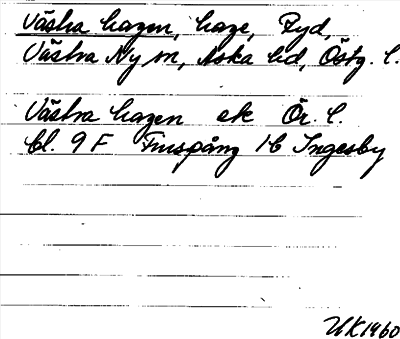 Västra hagen, hage, Ryd,
Västra Ny sn, Aska hd, Östg. l.
Västra hagen ek Ör. l.
bl. 9 F Finspång 1 C Ingesby
UK 1960